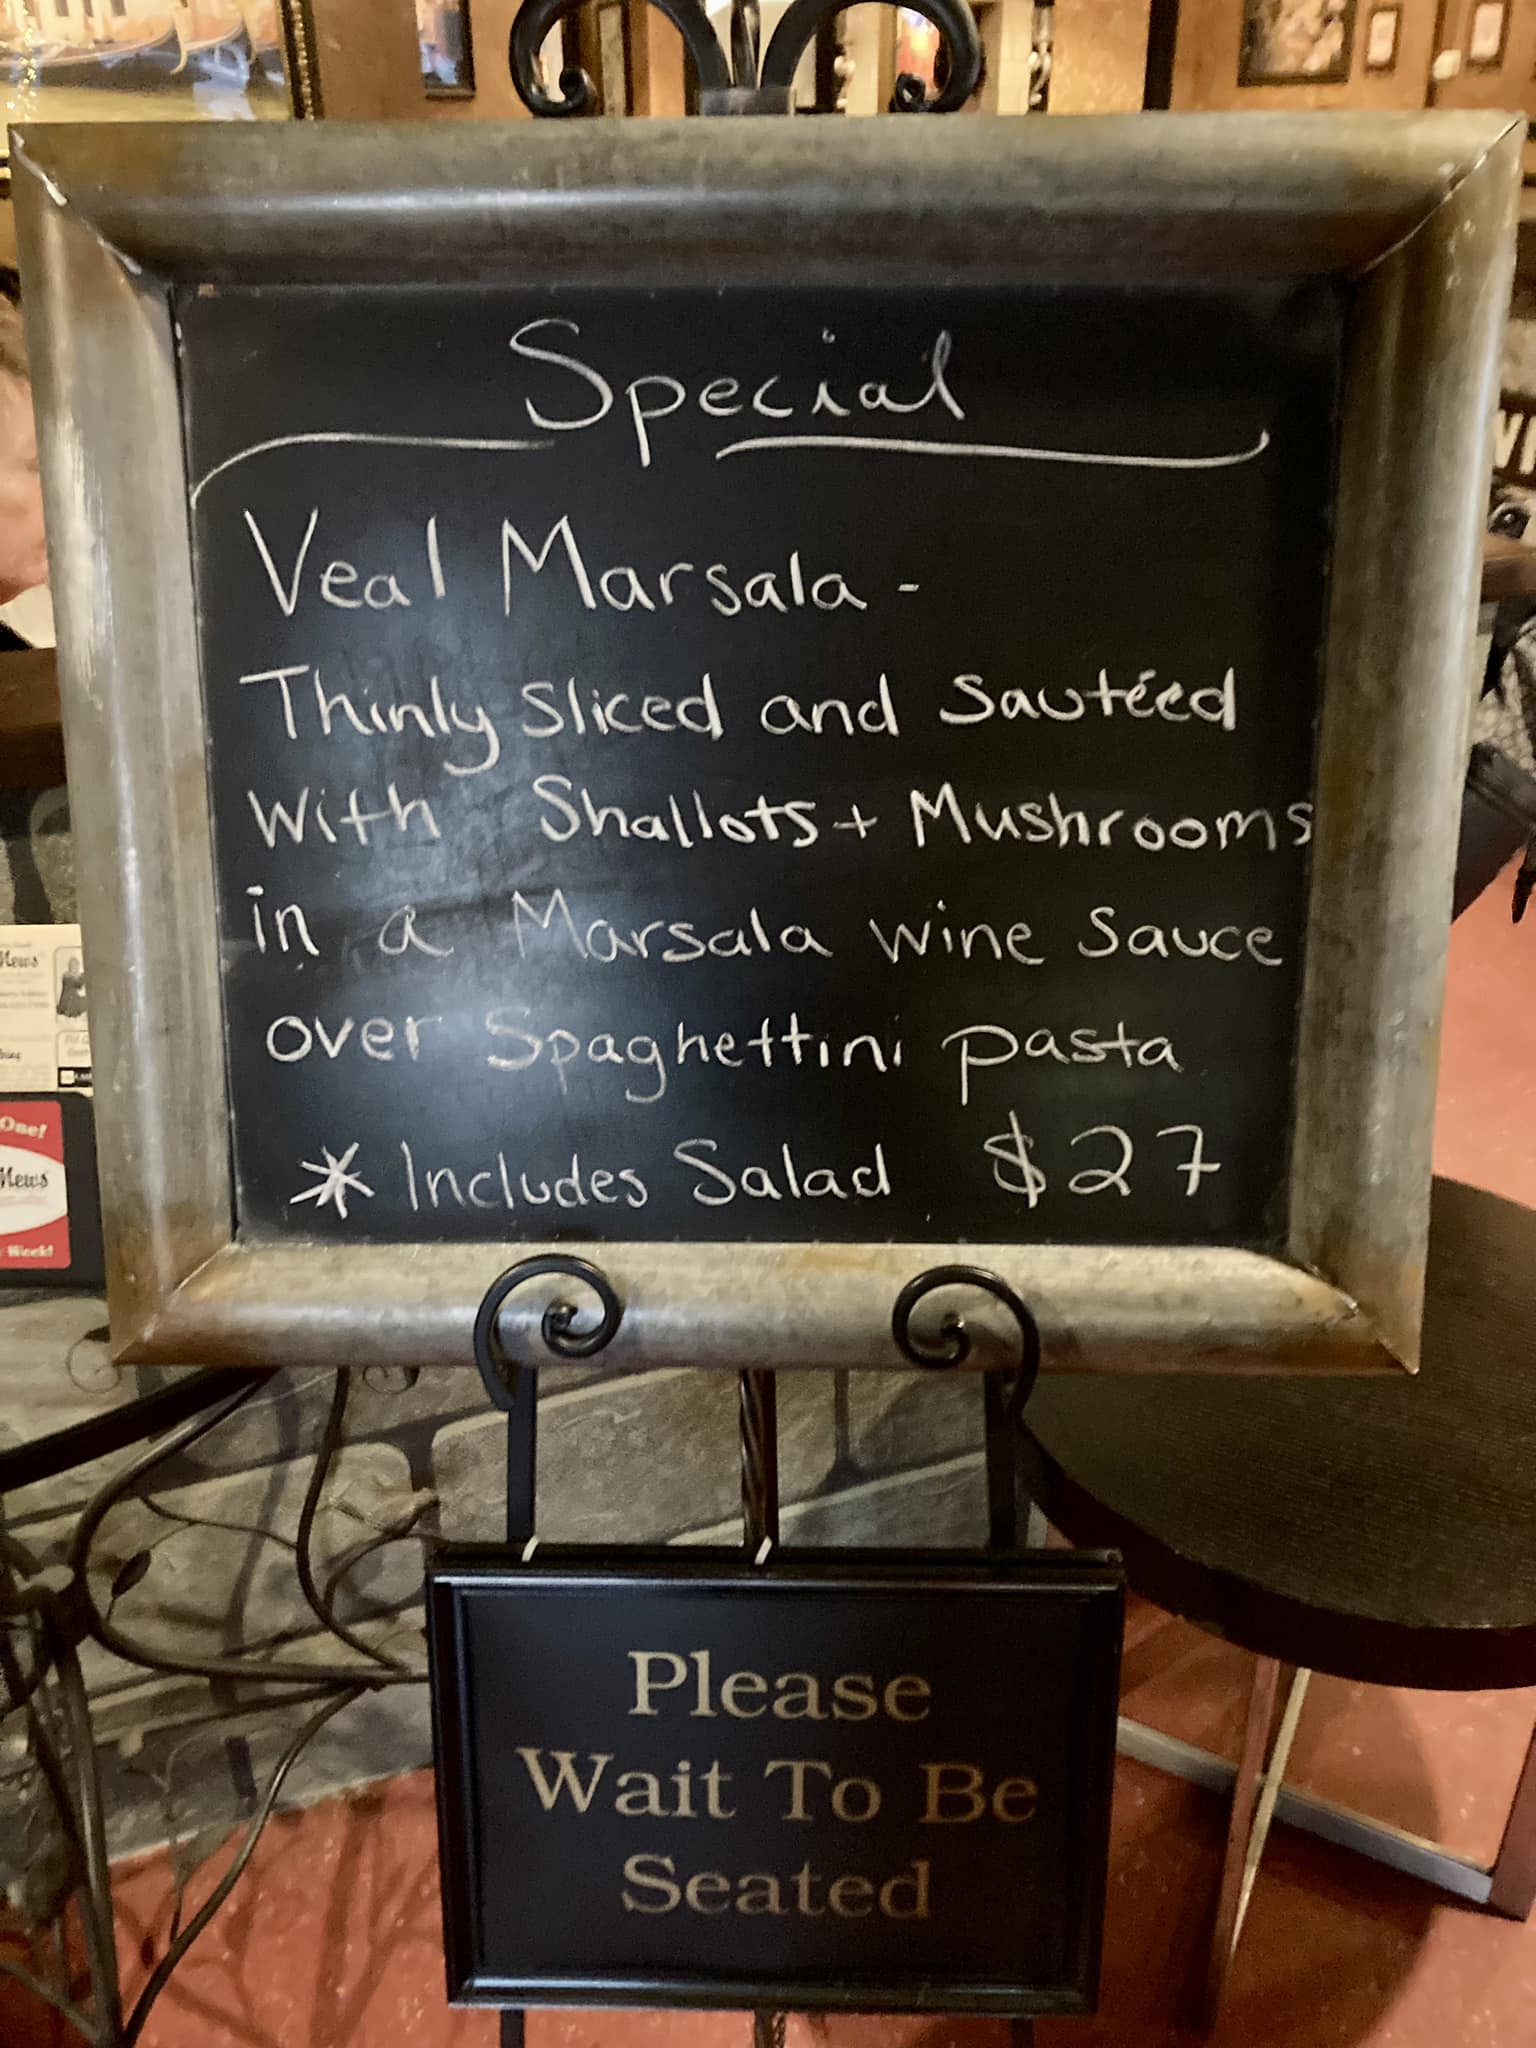 Special
Veal Marsala -
Thinly Sliced and Sautéed
With Shallots + Mushrooms
in a Marsala wine Sauce
over Spaghettini pasta
* Includes Salad $27
Please
Wait To Be
Seated
News
One!
News
Week!